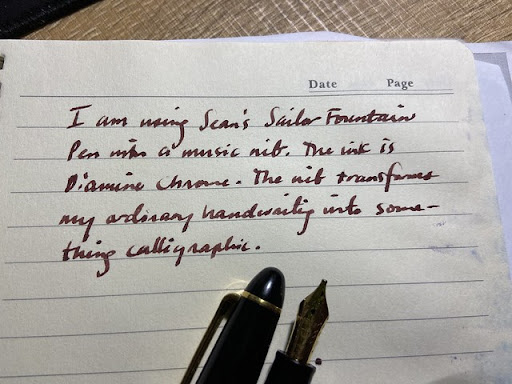 Date Page
I am using Sean's Sailor Fountain
Pen with a music nib. The ink is
Diamine Chrome. The nib transforms
my ordinary handwriting into some-
thing calligraphic.